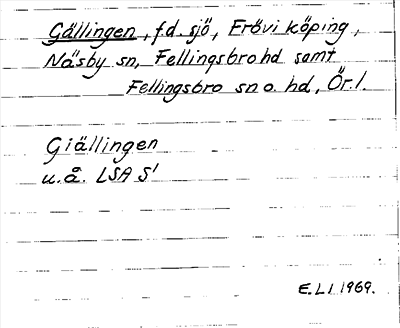 Gällingen, f.d. sjö, Ervi köping,
Näsby sn, Fellingsbro hd samt
Fellingsbro sn o. hd, Ör.l.
Giällingen
u.å. LSA S1
E.L! 1969.